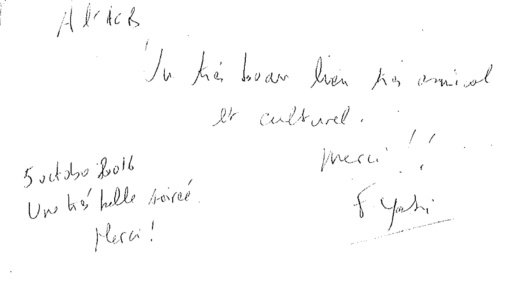 A l'ACB
Un très beau lien très amical
et culturel.
Merci !!
5 octobre 2016
Une très belle soirée.
Merci !
F